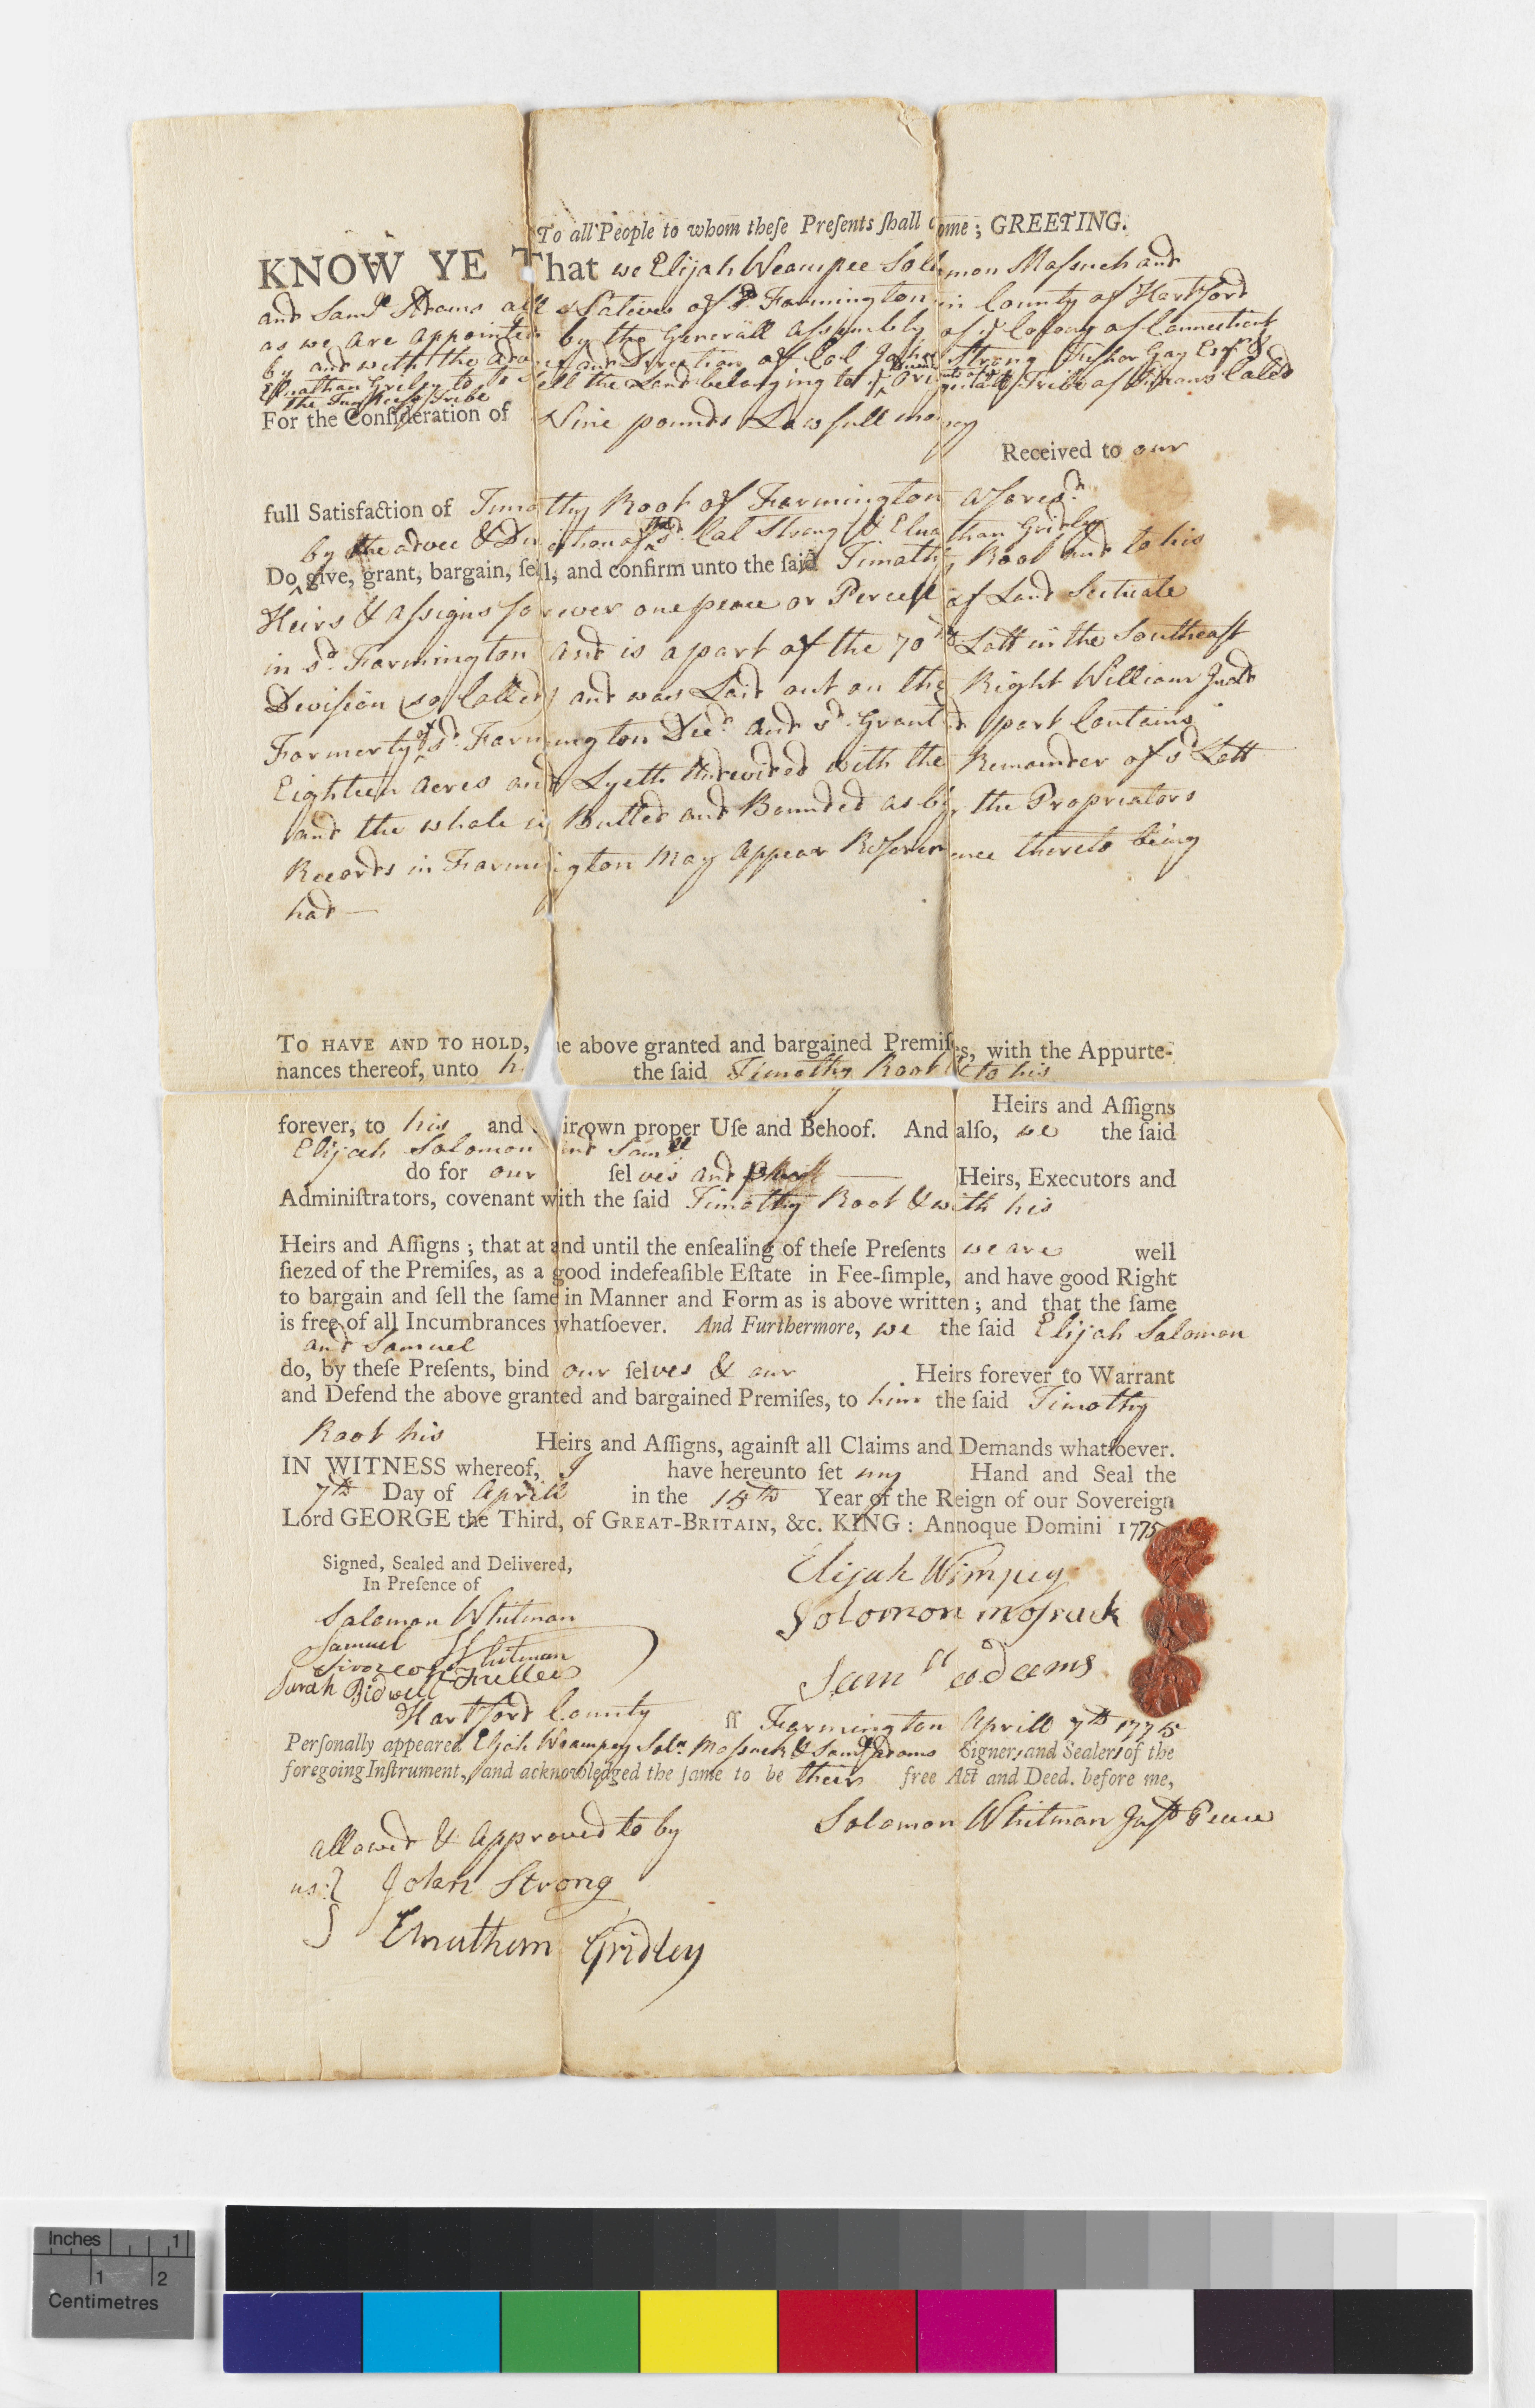 To all People to whom theſe Preſents ſhall come; GREETING.
KNOW YE That we Elijah Weampee Solomon Maſsuck and
and Samll Adams all Natives of sd Farmington in County of Hartford
as we are appointed by the Generall Assembly of ye Colony of Connecticut
by and with the advice and Direction of Col John Strong Fisher Gay Esqrs &
Elnathan Gridley to Sell the Land belonging to ye Tribe of Indians Caled
the Tunkseys Tribe
For the Conſideration of Nine pounds Lawfull money
Received to our
full Satisfaction of Timothy Root of Farmington aforesd
by the advce & Direction of sd Col Strong & Elnathan Gridley
Do give, grant, bargain, ſell, and confirm unto the ſaid Timothy Root and to his
Heirs & aſsigns forever one peace or Percell of Land Scituate
in sd Farmington and is a part of the 70th Lott in the Southeast
Diviſion (so Called) and was Laid out on the Right William Judd
Formerly of sd Farmington Decd and sd Granted part Contains
Eighteen acres and Lyeth Undevided with the Remainder of sd Lott
and the whole is Butted and Bounded as by the Propriators
Records in Farmington May Appear Referrence thereto being
had —
TO HAVE AND TO HOLD, the above granted and bargained Premiſes, with the Appurte-
nances thereof, unto h the ſaid Timothy Root & to his
Heirs and Aſſigns
forever, to his and their own proper Uſe and Behoof. And alſo, we the ſaid
Elijah Solomon and Samll
do for our ſelves and Heirs, Executors and
Adminiſtrators, covenant with the ſaid Timothy Root & with his
Heirs and Aſſigns; that at and until the enſealing of theſe Preſents we are well
ſiezed of the Premiſes, as a good indefeaſible Eſtate in Fee-ſimple, and have good Right
to bargain and ſell the ſame in Manner and Form as is above written; and that the ſame
is free of all Incumbrances whatſoever. And Furthermore, we the ſaid Elijah Solomon
and Samuel
do, by theſe Preſents, bind our ſelves & our Heirs forever to Warrant
and Defend the above granted and bargained Premiſes, to him the ſaid Timothy
Root his Heirs and Aſſigns, againſt all Claims and Demands whatſoever.
IN WITNESS whereof, I have hereunto ſet my Hand and Seal the
7th Day of Aprill in the 15th Year of the Reign of our Sovereign
Lord GEORGE the Third, of GREAT-BRITAIN, &c. KING: Annoque Domini 1775
Signed, Sealed and Delivered,
In Preſence of
Solomon Whitman
Samuel Whitman
Fuller
Sarah Bidwell
Elijah Wimpey
Solomon moſsuck
Samll adams
Hartford County ſſ Farmington Aprill 7th 1775
Perſonally appeared Elijah Weampey Soln Maſsuck & Samll Adams Signers and Sealers of the
foregoing Inſtrument, and acknowledged the ſame to be their free Act and Deed. before me,
Solomon Whitman Just Peace
allowed & Approved to by
us:} John Strong
} Elnathan Gridley
Inches 1
1 2
Centimetres